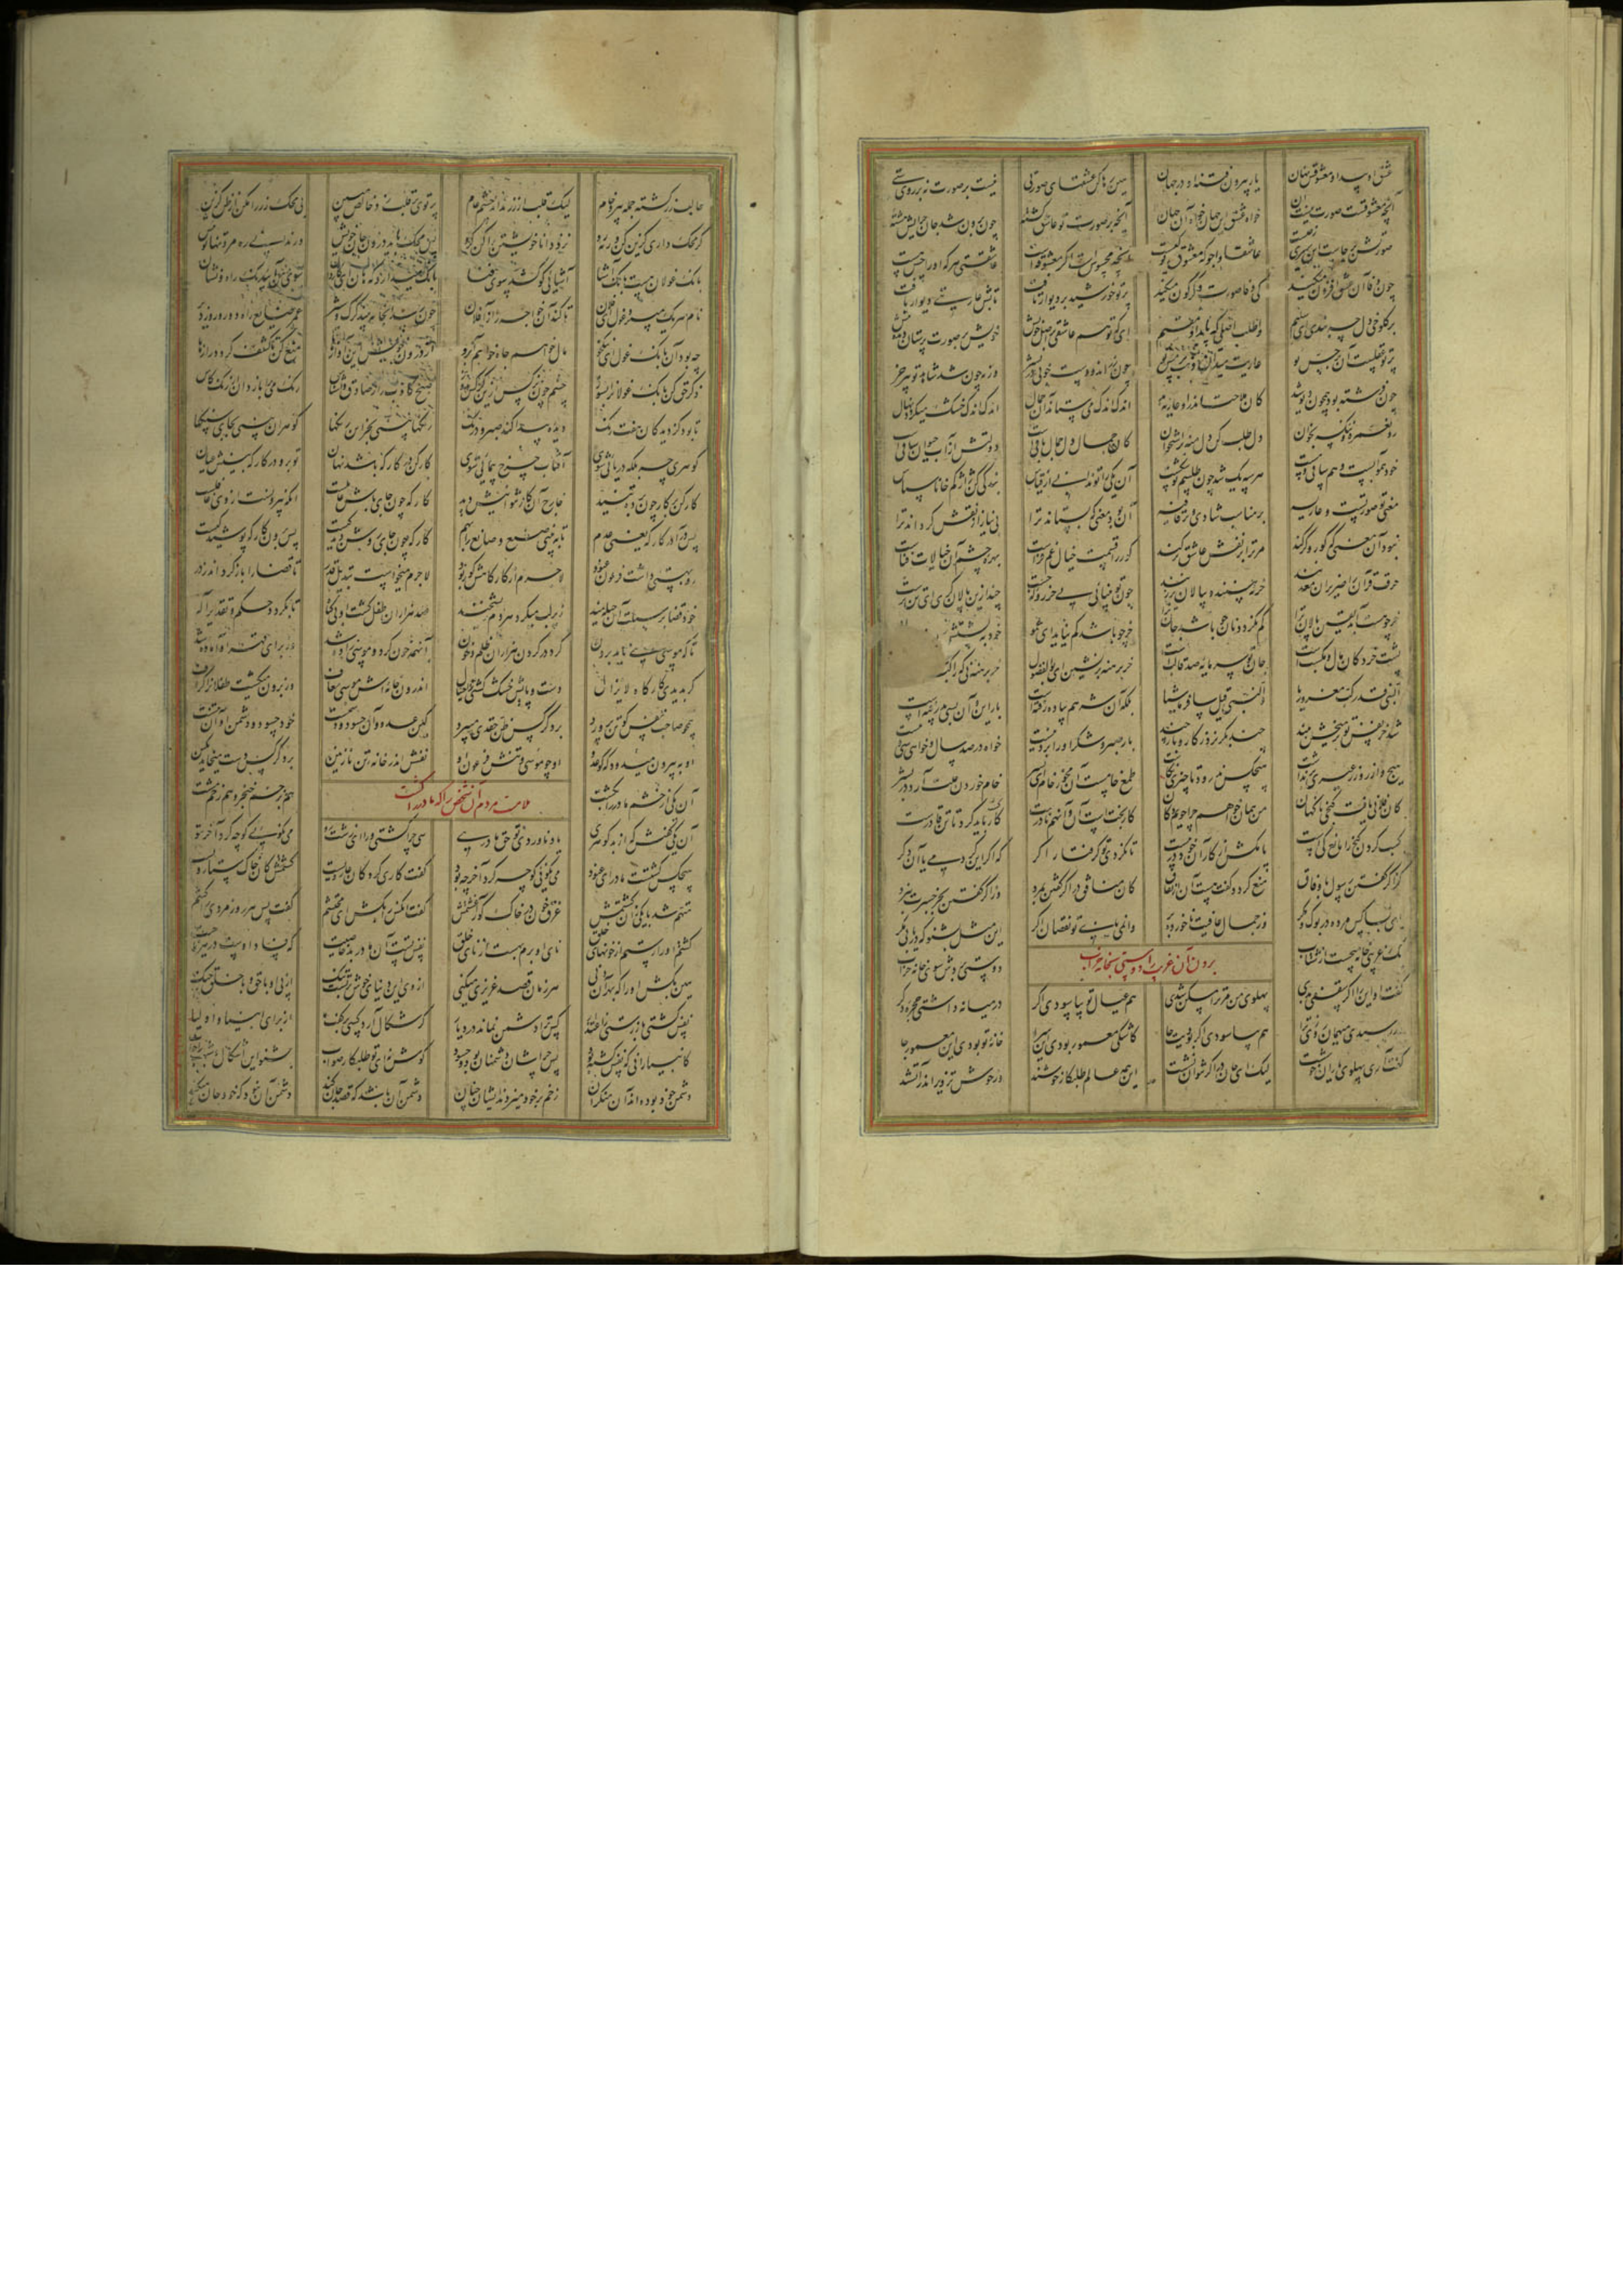 عشق او پیدا و معشوقش نهان یار بیرون فتنه او در جهان هین رها کن عشقهای صورتی نیست بر صورت نه بر روی ستی
آنچه معشوقست صورت نیست آن خواه عشق این جهان خواه آن جهان آنچه بر صورت تو عاشق گشته چون برون شد جان چرایش هشته
صورتش برجاست این سیری ز چیست عاشقا واجو که معشوق تو کیست آنچه محسوس است اگر معشوقه است عاشقستی هر که او را حس هست
چون وفا آن عشق افزون میکند کی وفا صورت دگرگون میکند پرتو خورشید بر دیوار تافت تابش عاریتی دیوار یافت
بر کلوخی دل چه بندی ای سلیم واطلب اصلی که پاید او مقیم ای که تو هم عاشقی بر اصل خویش خویش بر صورت پرستان دیده بیش
پرتو عقلست آن بر حس تو عاریت میدان ذهب بر مس تو چون زر اندودست خوبی در بشر ورنه چون شد شاهد تو پیر خر
چون فرشته بود همچون دیو شد کان ملاحت اندرو عاریه بد اندک اندک می ستاند آن جمال اندک اندک خشک میگردد نهال
رو نعمره ننکسه بخوان دل طلب کن دل منه بر استخوان کان جمال دل جمال باقیست دولتش از آب حیوان ساقیست
خود هموآبست و هم ساقی و مست هر سه یک شد چون طلسم تو شکست آن یکی را تو ندانی از قیاس بندگی کن ژاژ کم خا ناشناس
معنی تو صورتست و عاریه بر مناسب شادی و بر قافیه آن بود معنی که بستاند ترا بی نیاز از نقش گرداند ترا
نبود آن معنی که کور و کر کند مر ترا بر نقش عاشق تر کند کور را قسمت خیال غم فزاست بهره چشم آن خیالات فناست
حرف قرآن را ضریران معدنند خر نبینند و بپالان بر زنند چون تو بینائی پی خر رو که جست چند ازین پالان گری ای تن پرست
خر چو هست آید یقین پالان ترا کم نگردد نان چو باشد جان ترا خر چو باشد کم نیاید ای عمو خود به پشتش
پشت خر دکان مال و مکسب است جان تو سرمایه صد قالب است خر برهنه بر نشین ای بوالفضول خر برهنه نی که راکب
النبی قد رکب معروریا والنبی قیل سافر ماشیا بلکه آن شه هم پیاده رفته است بار این و آن بسی پذیرفته است
شد خر نفس تو بر میخیش بند چند بگریزد ز کار و بار چند بار صبر و شکر او را بردنیست خواه در صد سال و خواهی سی و بیست
هیچ وازر وزر غیری برنداشت هیچکس ندرود تا چیزی نکاشت طمع خامست آن مخور خام ای پسر خام خوردن علت آرد در بشر
کان فلانی یافت گنجی ناگهان من همان خواهم چرا جویم دکان کار بختست آن و آن هم نادرست کار باید کرد تا تن قادرست
کسب کردن گنج را مانع کیست پا مکش از کار آن خود در پیست تا نگردی تو گرفتار اگر که اگر این کردمی یا آن دگر
کز اگر گفتن رسول با وفاق منع کرد و گفت هست آن از نفاق کان منافق در اگر گفتن بمرد وز اگر گفتن بجز حسرت نبرد
ای بسا کس مرده در بوک و مگر وز جمال عافیت ناخورده بر وانمی بینی تو نقصان اگر این مثل بشنو که دریابی مگر
یک غریبی خانه میجست از شتاب دوستی بردش سوی خانه خراب
بردن آن غریب را دوستی بخانه خراب
گفت او این را اگر سقفی بدی پهلوی من مر ترا مسکن شدی هم عیال تو بیاسودی اگر در میانه داشتی حجره دگر
ور رسیدی میهمان روزی ترا هم بیاسودی اگر بودیت جا کاشکی معمور بودی این سرا خانه تو بودی این معمور جا
گفت آری پهلوی یاران خوشست لیک ای جان در اگر نتوان نشست این همه عالم طلبکار خوشند وز خوش تزویر اندر آتشند
طالب زر گشته جمله پیر و خام لیک قلب از زر نداند چشم عام پرتوی بر قلب زد خالص ببین بی محک زر را مکن از ظن گزین
گر محک داری گزین کن ورنه رو نزد دانا خویشتن را کن گرو پس محک باید درون جان خویش ور ندانی ره مرو تنها تو پیش
بانگ غولان هست بانگ آشنا آشنائی که کشد سوی فنا بانگ میدارد که هان ای کاروان سوی من آیید نک راه و نشان
نام هر یک میبرد غول ای فلان تا کند آن خواجه را از آفلان چون رسد آنجا ببیند گرگ و شیر عمر ضایع راه دور و روز دیر
چه بود آن بانگ غول ای نیکخو مال خواهم جاه خواهم آبرو از درون خویش این آوازها منع کن تا کشف گردد رازها
ذکر حق کن بانگ غولان را بسوز چشم چون نرگس ازین کرکس بدوز صبح کاذب را ز صادق واشناس رنگ می را باز دان از رنگ کاس
تا بود کز دیدگان هفت رنگ دیده پیدا کند صبر و درنگ رنگها بینی بجز این رنگها گوهران بینی بجای سنگها
گوهری چه بلکه دریائی شوی آفتاب چرخ پیمائی شوی کارکن در کارگه باشد نهان تو برو در کارگه بینش عیان
کار چون بر کارکن پرده تنید خارج آن کار نتوانیش دید کارگه چون جای باش عاملست آنکه بیرونست از وی غافلست
پس درآ در کارگه یعنی عدم تا ببینی صنع و صانع را بهم کارگه چون جای روشن دیدگیست پس برون کارگه پوشیدگیست
رو بهستی داشت فرعون عنود لاجرم از کارگاهش کور بود لاجرم میخواست تبدیل قدر تا قضا را باز گرداند ز در
خود قضا بر سبلت آن حیله مند زیر لب میکرد هر دم ریشخند صد هزاران طفل کشت او بی گناه تا بگردد حکم و تقدیر اله
تا که موسی نبی ناید برون کرد در گردن هزاران ظلم و خون آن همه خون کرد و موسی زاده شد وز برای قهر او آماده شد
گر بدیدی کارگاه لایزال دست و پایش خشک گشتی ز احتیال اندرون خانه اش موسی معاف وز برون میکشت طفلان را گزاف
همچو صاحب نفس کو تن پرورد بر دگر کس ظن حقدی میبرد کین عدو و آن حسود و دشمنست خود حسود و دشمن او آن تنست
او چو موسی و تنش فرعون او او به بیرون میدود که کو عدو نفس اندر خانه تن نازنین بر دگر کس دست میخاید بکین
آن یکی از خشم مادر را بکشت هم بزخم خنجر و هم زخم مشت
ملامت مردم آن شخص را که مادر را کشت
آن یکی گفتش که از بد گوهری یاد ناوردی تو حق مادری هی چرا کشتی ورا ای زشت خو می نگوئی کو چه کرد آخر بتو
هیچکس کشتست مادر ای عنود می نگوئی کو چه کرد آخر چه بود گفت کاری کرد کان عار ویست کشتمش کان خاک ستار ویست
متهم شد با یکی زان کشتمش غرق خون در خاک گور آغشتمش گفت آنکس را بکش ای محتشم گفت پس هر روز مردی را کشم
کشتم او را رستم از خونهای خلق نای او برم بهست از نای خلق نفس تست آن مادر بد خاصیت که فساد اوست در هر ناحیت
هین بکش او را که بهر آن دنی هر زمان قصد عزیزی میکنی از وی این دنیای خوش بر تست تنگ از پی او با حق و با خلق جنگ
نفس کشتی باز رستی ز اعتذار کس ترا دشمن نماند در دیار گر شکال آرد کسی بر گفت ما از برای انبیا و اولیا
کانبیا را نی که نفس کشته بود پس چراشان دشمنان بود و حسود گوش نه ای تو طلبکار صواب بشنو این اشکال و شبهت را جواب
دشمن خود بوده اند آن منکران زخم بر خود میزدند ایشان چنان دشمن آن باشد که قصد جان کند دشمن آن نبود که خود جان میکند